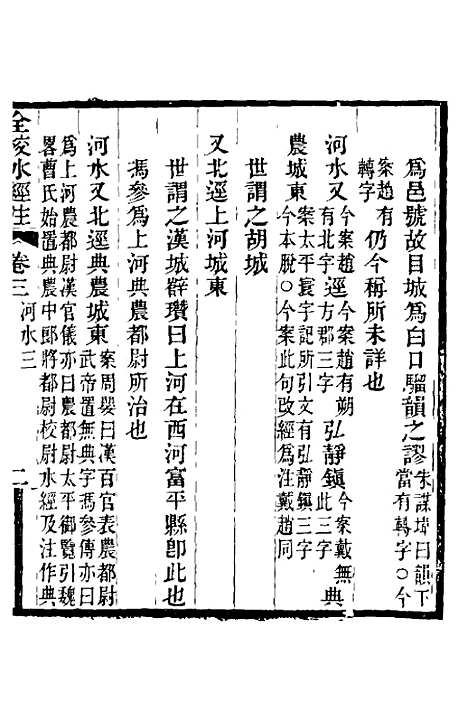 爲邑號故目城爲白口騮韻之謬朱謀㙔曰韻下當有轉字○今
案趙有轉字仍今稱所未詳也
河水又今案趙有北字逕今案趙有朔方郡三字弘靜鎮今案戴無此三字典
農城東案太平寰宇記所引文有弘靜鎮三字今本脫○今案此句改經爲注戴趙同
世謂之胡城
又北逕上河城東
世謂之漢城薛瓚曰上河在西河富平縣卽此也
馮參爲上河典農都尉所治也
河水又北逕典農城東案周嬰曰漢百官表農都尉武帝置無典字馮參傳亦曰
爲上河農都尉漢官儀亦曰農都尉太平御覽引魏
畧曹氏始置典農中郎將都尉校尉水經及注作典
全校水經注 卷三 河水三 二